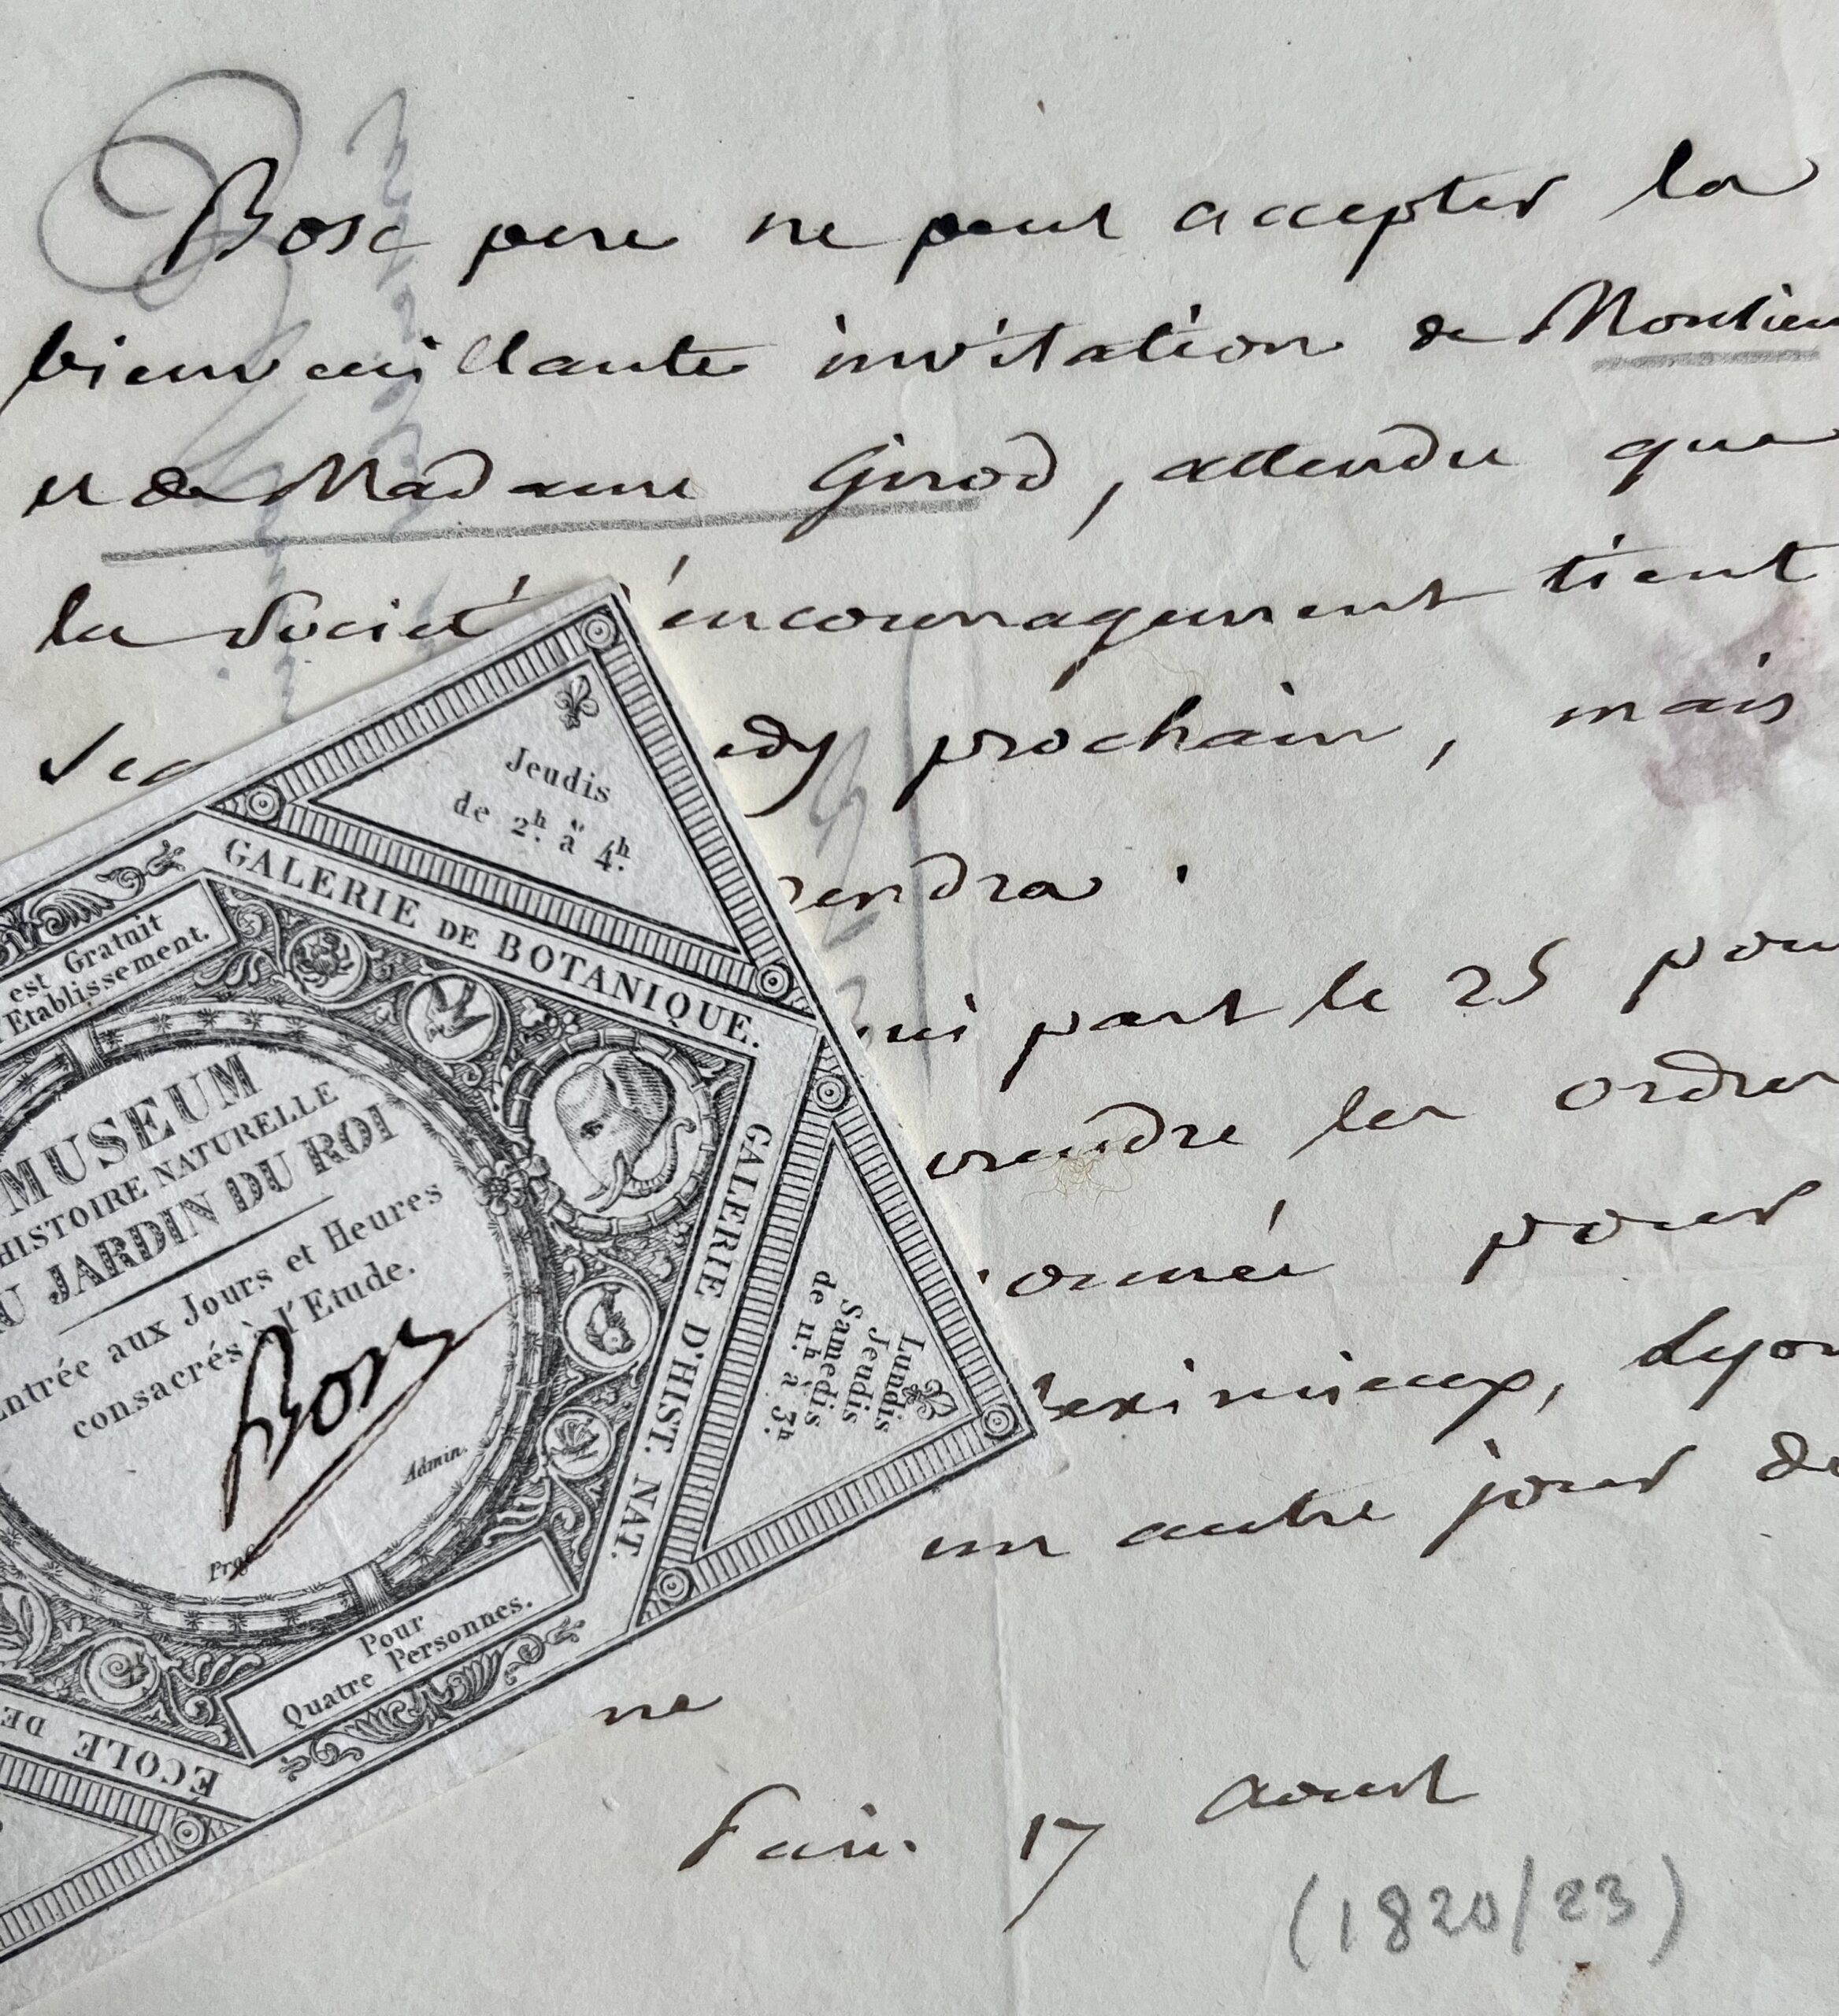 Bosc pere ne peut accepter la
bienveuillante invitation de Monsieu
et de Madame Girod, attendu que
la Societé encouragement tient
edy prochain, mais
endra.
ui part le 25 pou
rendre les ordres
ourné pour
eximieux, Lyon
un autre jour de
ne
Paris 17 Aoust
(1820/23)
Jeudis
de 2h. à 4h.
GALERIE DE BOTANIQUE.
est Gratuit
Etablissement.
MUSEUM
HISTOIRE NATURELLE
U JARDIN DU ROI
Entrée aux Jours et Heures
consacrés à l'Etude.
Bosc
Admin.
Prof.
GALERIE D'HIST. NAT.
Lundis
Jeudis
Samedis
de 11h. à 3h.
Pour
Quatre Personnes.
ECOLE DE